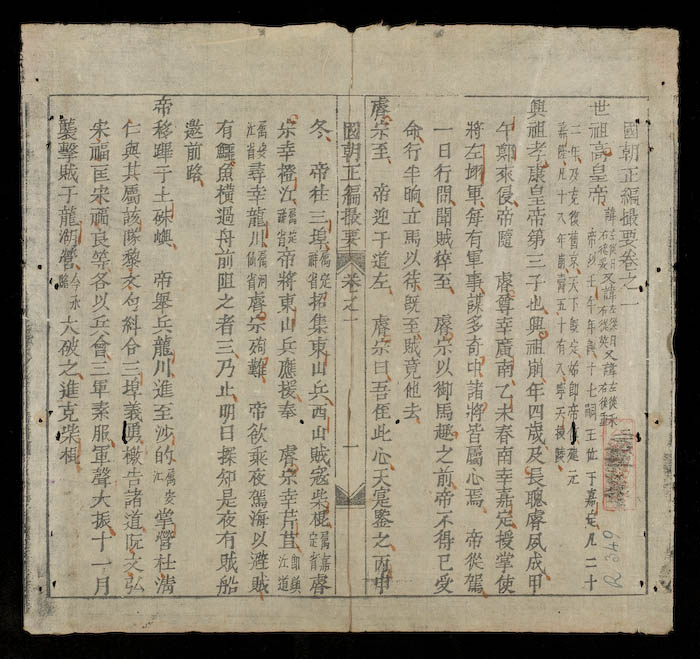 國朝正編撮要卷之一
世祖高皇帝
帝以壬午年誕十七嗣王位于嘉定凡二十
二年及克復舊京天下定始即帝位建元
嘉隆凡十八年壽五十有八寧天授陵
興祖孝康皇帝第三子也興祖崩年四歲及長聰睿夙成甲
午鄭來侵帝隨 睿尊幸廣南乙未春南幸嘉定援掌使
將左翊軍每有軍事謀多奇中諸將皆屬心焉 帝從駕
一日行間聞賊猝至 睿宗以御馬趣之前帝不得已受
命行半晌立馬以待既至賊竟他去
睿宗至 帝迎于道左 睿宗曰吾侄此心天寔鑒之丙申
國朝正編撮要 卷之一 一
冬 帝在三埠屬定祥省招集東山兵西山賊寇柴棍屬嘉定省睿
宗幸橙江屬定祥省帝將東山兵應援奉 睿宗幸芹苴即鎮江道
屬安江省尋幸龍川屬河僊省睿宗殉難 帝欲乘夜駕海以避賊
有鱷魚橫過舟前阻之者三乃止明日探知是夜有賊船
邀前路
帝移蹕于土硃嶼 帝舉兵龍川進至沙的屬安江掌營杜清
仁與其屬該隊黎文勻糾合三埠義勇檄告諸道阮文弘
宋福匡宋福良等各以兵會三軍素服軍聲大振十一月
襲擊賊于龍湖營今永隆大破之進克柴棍
R.349